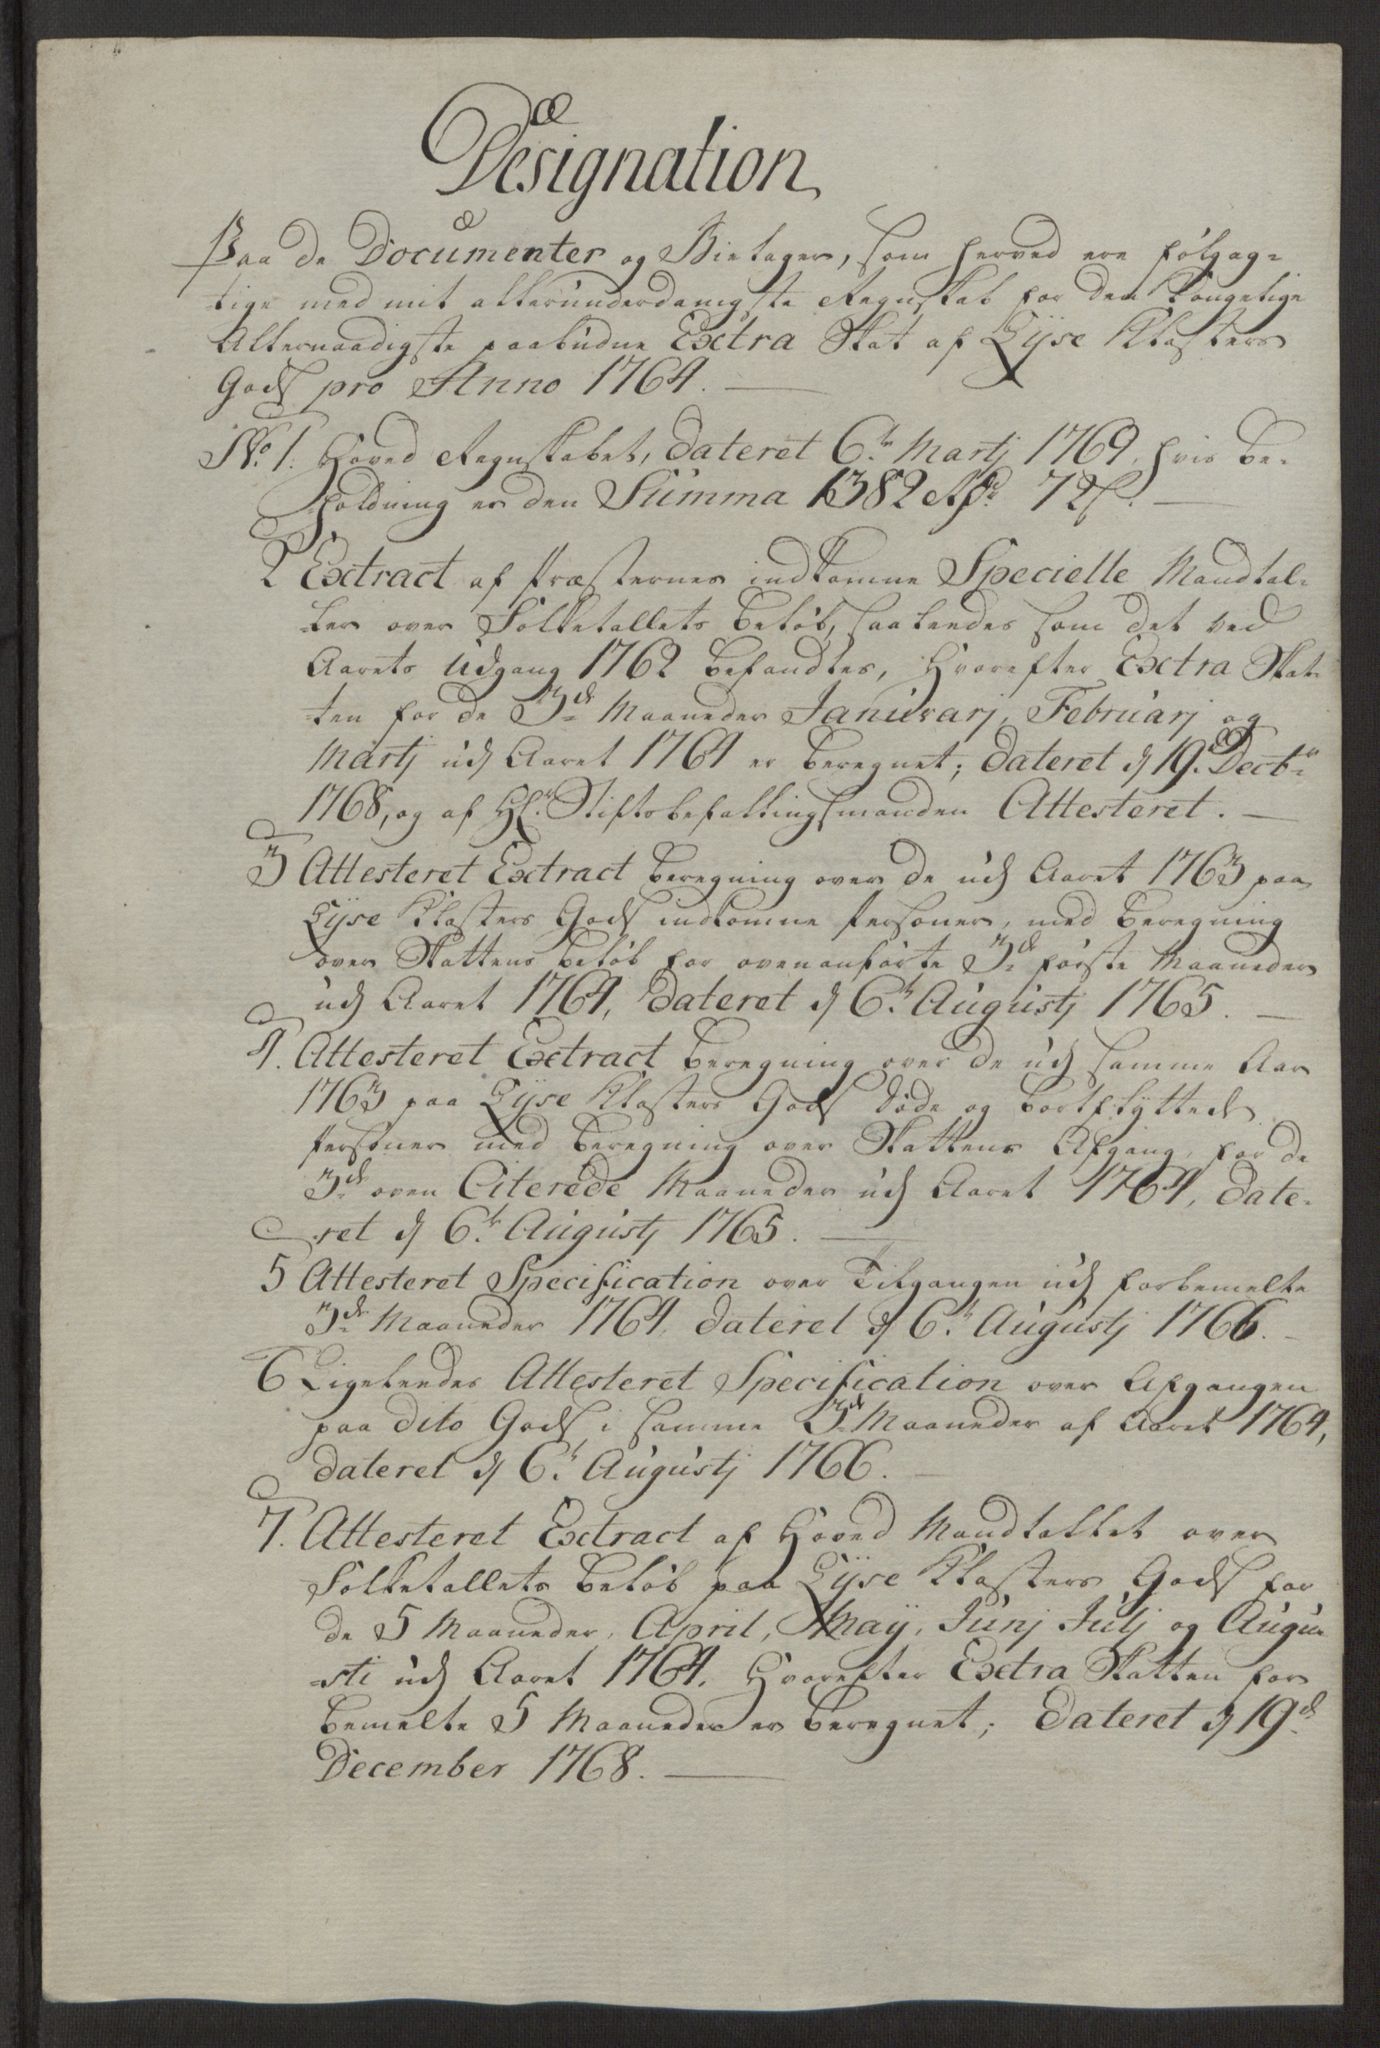 Designation
Paa de Documenter og Bielager, som herved ere følgag-
tige med mit allerunderdanigste Regnskab for den Kongelige
Allernaadigste paabudne Extra Skat af Lyse Klosters
Gods pro Anno 1764.
No. 1. Hoved Regnskabet, dateret 6te Martj 1769, hvis be-
holdning er den Summa 1382 Rdr 72 s.
2 Extract af Præsternes indkomne Specielle Mandtal-
ler over Folketallets beløb, saaledes som det ved
Aarets Udgang 1762 befandtes, hvorefter Extra Skat-
ten for de 3de Maaneder Januarj, Februarj og
Martj udj Aaret 1764 er beregnet; dateret d 19. Decbr
1768, og af Hr. Stiftsbefallingsmanden Attesteret.
3 Attesteret Extract beregning over de udj Aaret 1763 paa
Lyse Klosters Gods indkomne Personer, med beregning
over Skattens beløb for ovenanførte 3de første Maaneder
udj Aaret 1764, dateret d 6te Augustj 1765.
4. Attesteret Extract beregning over de udj samme Aar
1763 paa Lyse Klosters Gods døde og bortflyttede
Personer med beregning over Skattens Afgang for de
3de oven Citerede Maaneder udj Aaret 1764, date-
ret d 6te Augustj 1765.
5 Attesteret Specification over Tilgangen udj forbemelte
3de Maaneder 1764, dateret d 6te Augustj 1766.
6 Ligeledes Attesteret Specification over Afgangen
paa dito Gods i samme 3de Maaneder af Aaret 1764,
dateret d 6te Augustj 1766.
7. Attesteret Extract af Hoved Mandtallet over
Folketallets beløb paa Lyse Klosters Gods for
de 5 Maaneder, April, May, Junj Julj og Augu-
sti udj Aaret 1764, hvorefter Extra Skatten for
bemelte 5 Maaneder er beregnet; dateret d 19de
December 1768.